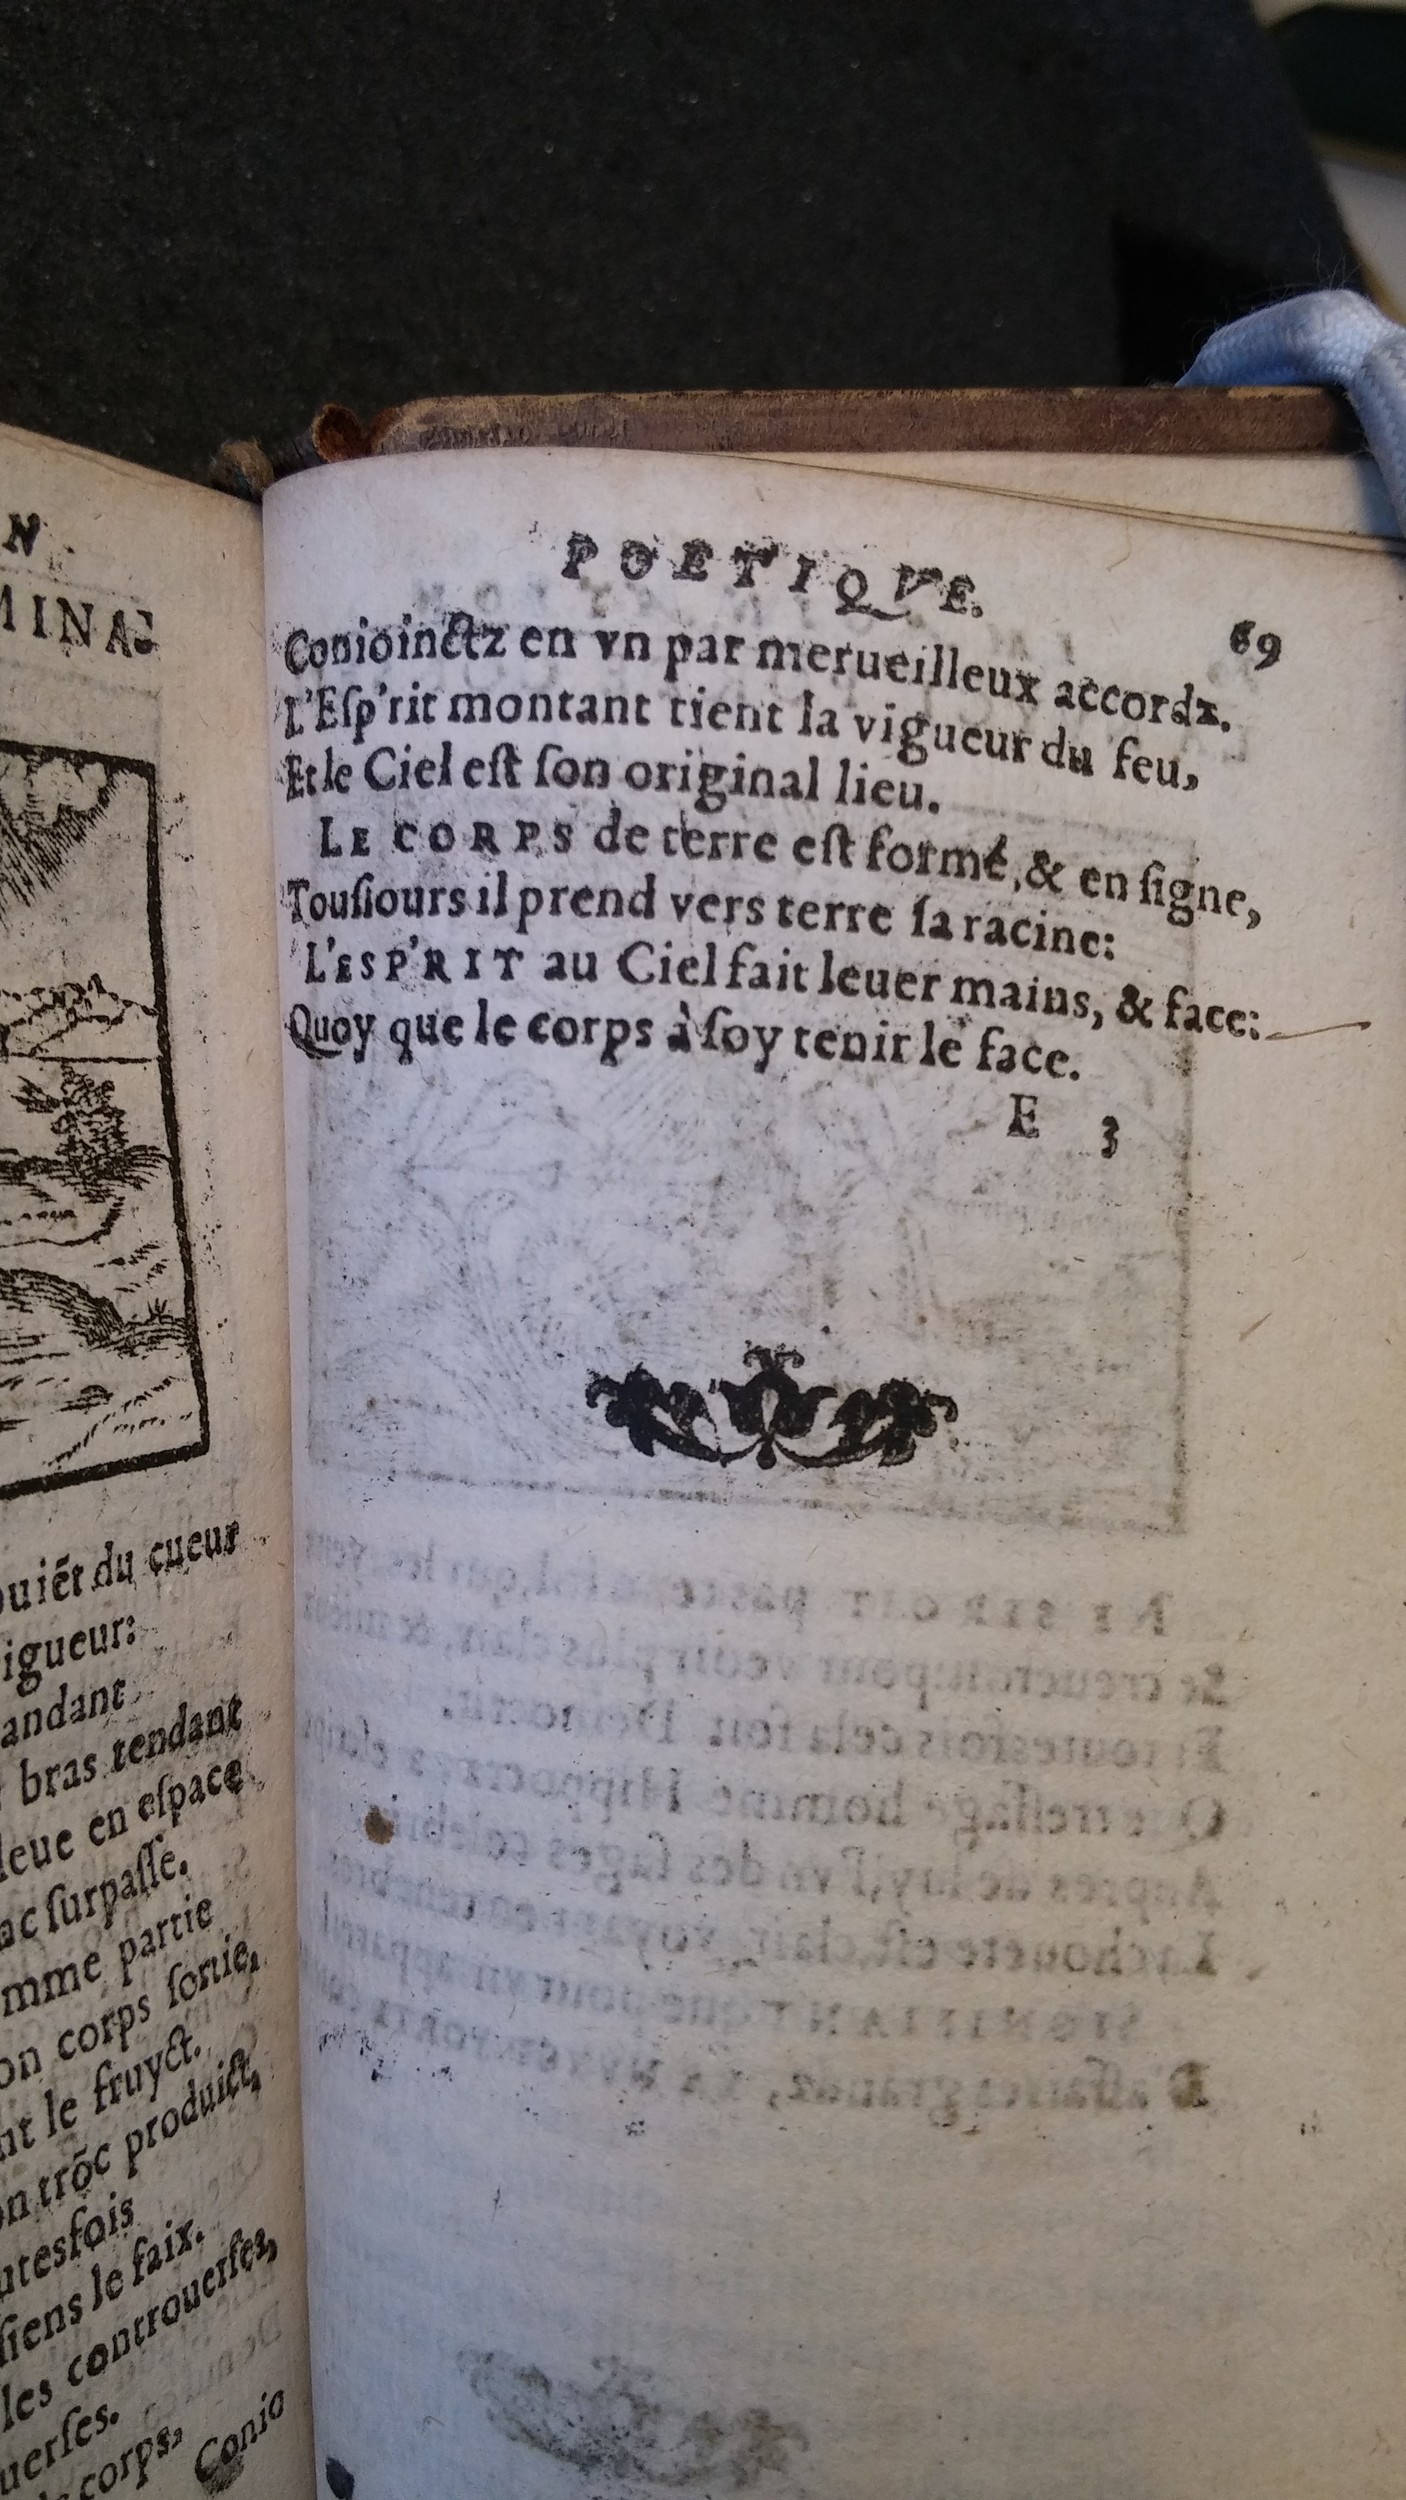 N
MINA-
ouiẽt du cueur
igueur:
andant
bras tendant
leue en eſpace
ac ſurpaſſe.
mme partie
on corps ſortie,
nt le fruyct.
on trõc produict,
utesfois
ſiens le faix.
les controuerſes,
uerſes.
corps,
Conio
POETIQVE. 69
Conioinctz en vn par merueilleux accordz.
L'Eſp'rit montant tient la vigueur du feu,
Et le Ciel eſt ſon original lieu.
LE CORPS de terre eſt formé, & en ſigne,
Touſiours il prend vers terre ſa racine:
L'ESP'RIT au Ciel fait leuer mains, & face:
Quoy que le corps à ſoy tenir le face.
E 3